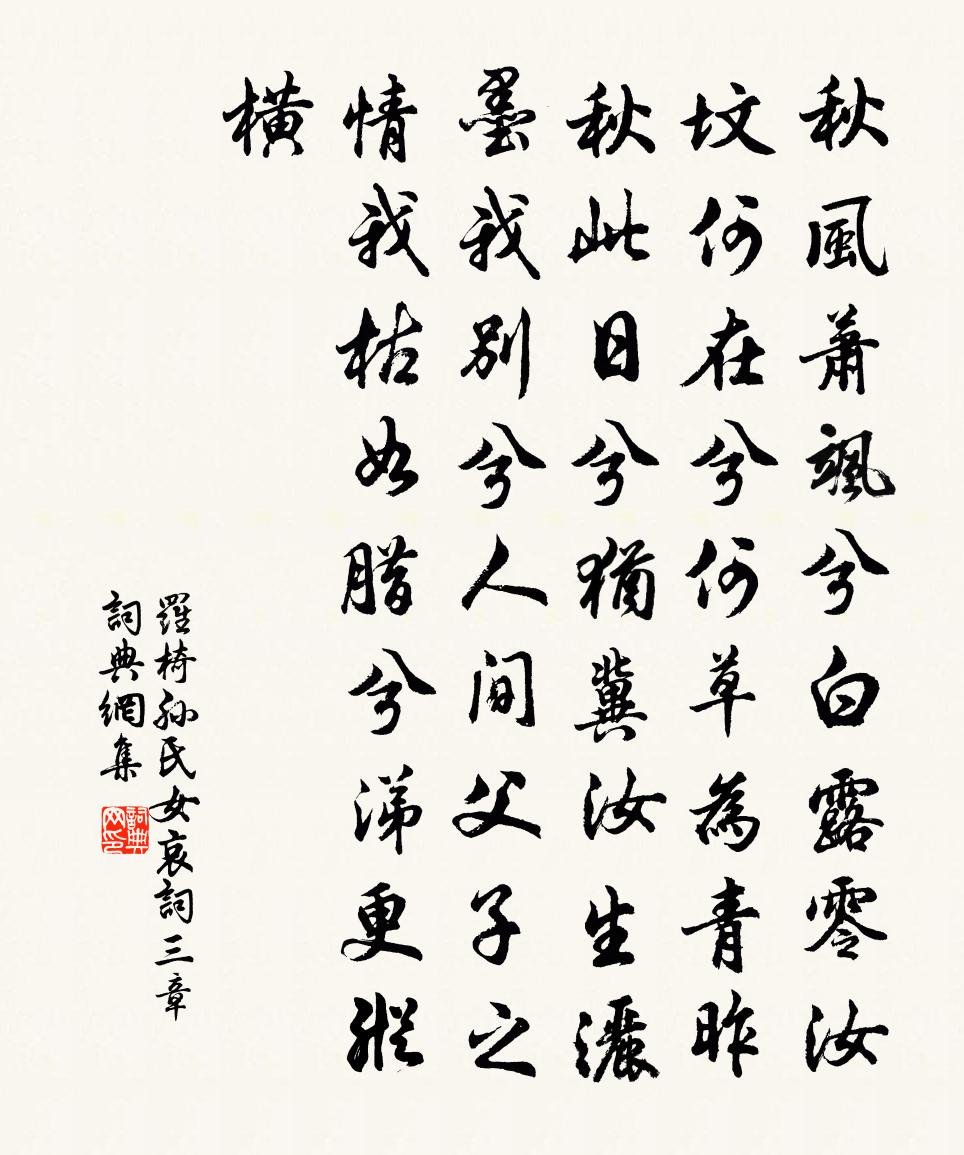 秋風蕭颯兮白露零汝
墳何在兮何草為青昨
秋此日兮猶冀汝生灑
墨我別兮人間父子之
情我枯如腊兮涕更縱
橫
羅椅孫氏女哀詞三章
詞典網集
詞典网印